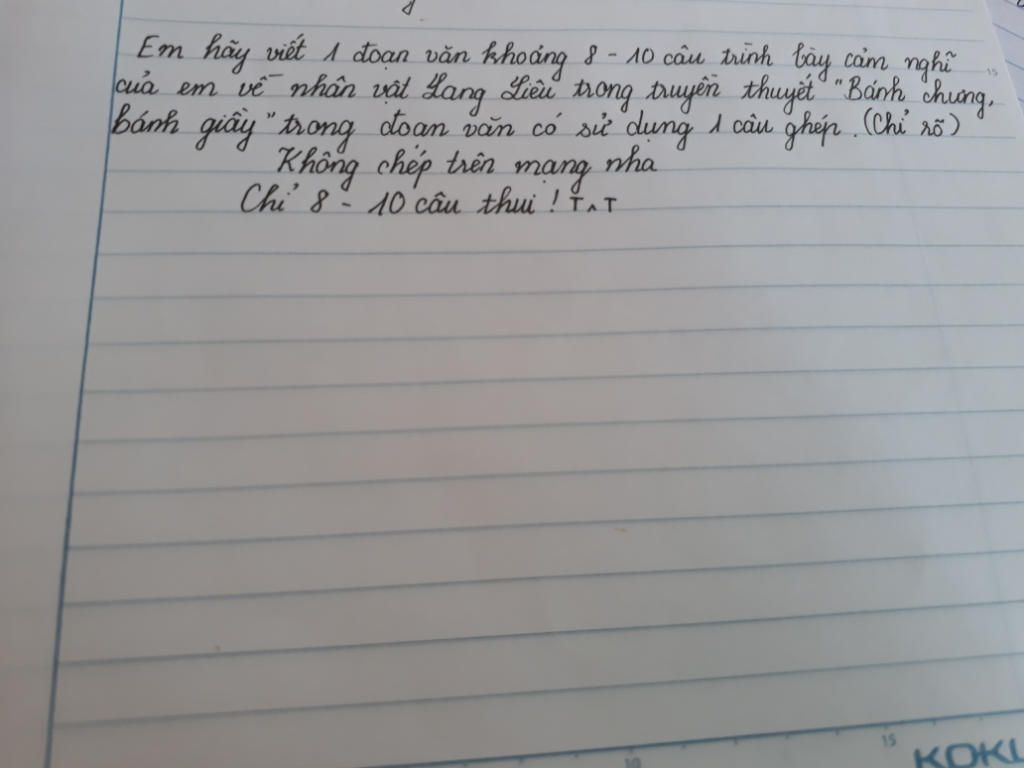 Em hãy viết 1 đoạn văn khoảng 8 - 10 câu trình bày cảm nghĩ
của em về nhân vật Lang Liêu trong truyền thuyết "Bánh chưng,
bánh giầy" trong đoạn văn có sử dụng 1 câu ghép. (Chỉ rõ)
Không chép trên mạng nha
Chỉ 8 - 10 câu thui ! T^T
10
15
KOKU